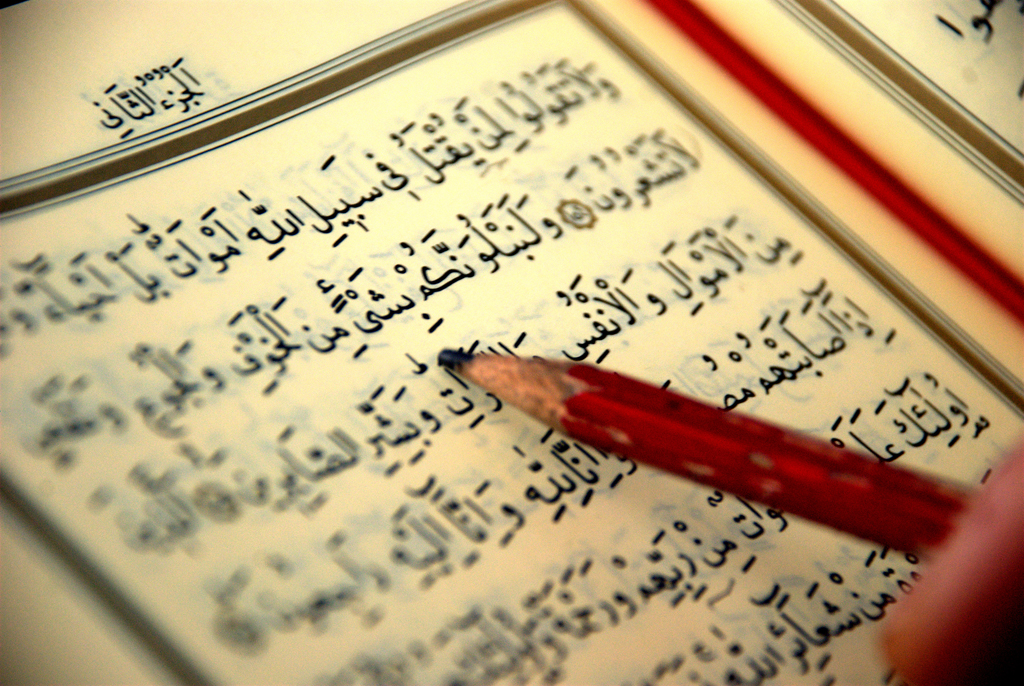 الجزء الثاني
وَلَا تَقُولُوا لِمَنْ يُقْتَلُ فِي سَبِيلِ اللَّهِ أَمْوَاتٌ بَلْ أَحْيَاءٌ
لَا تَشْعُرُونَ وَلَنَبْلُوَنَّكُمْ بِشَيْءٍ مِنَ الْخَوْفِ وَالْجُوعِ وَنَقْصٍ
مِنَ الْأَمْوَالِ وَالْأَنْفُسِ وَبَشِّرِ الصَّابِرِينَ الَّذِينَ
إِذَا أَصَابَتْهُمْ إِنَّا لِلَّهِ وَإِنَّا إِلَيْهِ رَاجِعُونَ
أُولَٰئِكَ مِنْ رَبِّهِمْ وَرَحْمَةٌ
مِنْ شَعَائِرِ اللَّهِ